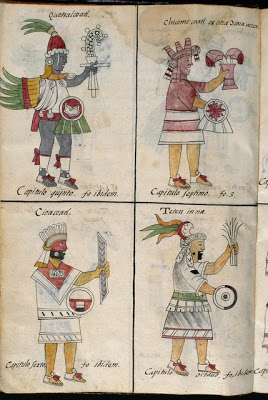 Quetzalcoatl.
Chicome coatl es otra diosa ceres
Capitulo quinto. fo. ibidem.
Capitulo septimo. fo. 3.
Cioacoatl.
Teteu inna
Capitulo sexto, fo ibidem.
Capitulo octauo, fo, ibidem